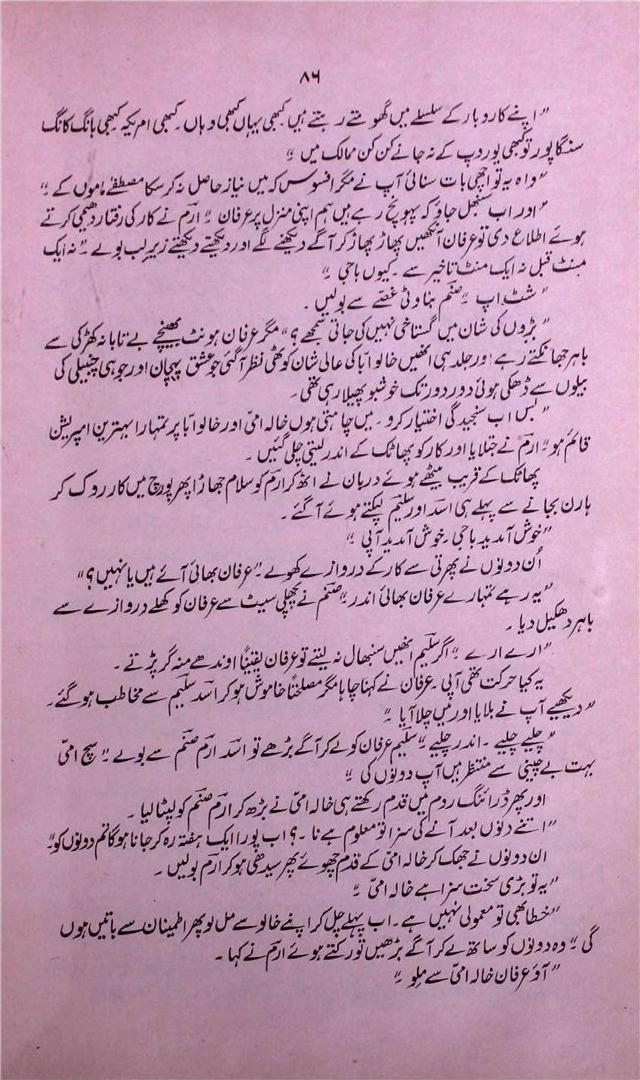 ۸۶
"اپنے کاروبار کے سلسلے میں گھومتے رہتے ہیں کبھی یہاں کبھی وہاں۔ کبھی امریکہ کبھی ہانگ کانگ
سنگاپور تو کبھی یوروپ کے نہ جانے کن کن ممالک میں"۔
"واہ یہ تو اچھی بات سنائی آپ نے مگر افسوس کہ میں نیاز حاصل نہ کر سکا مصطفےٰ ماموں کے"۔
"اور اب سنبھل جاؤ کہ پہونچ رہے ہیں ہم اپنی منزل پر عرفان"۔ ارم نے کار کی رفتار دھیمی کرتے
ہوئے اطلاع دی تو عرفان آنکھیں پھاڑ پھاڑ کر آگے دیکھنے لگے اور دیکھتے دیکھتے زیرِ لب بولے۔ "نہ ایک
منٹ قبل نہ ایک منٹ تاخیر سے۔ کیوں باجی"۔
"شٹ اپ" صنم بناوٹی غصے سے بولیں۔
"بڑوں کی شان میں گستاخی نہیں کی جاتی سمجھے؟" مگر عرفان ہونٹ بھینچے بے تابانہ کھڑکی سے
باہر جھانکتے رہے اور جلد ہی انھیں خالو ابا کی عالی شان کوٹھی نظر آگئی جو عشق پیچان اور جوہی چنبیلی کی
بیلوں سے ڈھکی ہوئی دور دور تک خوشبو پھیلا رہی تھی۔
"بس اب سنجیدگی اختیار کرو۔ میں چاہتی ہوں خالہ امی اور خالو ابا پر تمہارا بہترین امپریشن
قائم ہو" ارم نے جتلایا اور کار کو پھاٹک کے اندر لیتی چلی گئیں۔
پھاٹک کے قریب بیٹھے ہوئے دربان نے اٹھ کر ارم کو سلام جھاڑا پھر پورچ میں کار روک کر
ہارن بجانے سے پہلے ہی اسد اور سلیم لپکتے ہوئے آگئے۔
"خوش آمدید باجی۔ خوش آمدید آپی"۔
اُن دونوں نے پھرتی سے کار کے دروازے کھولے۔ "عرفان بھائی آئے ہیں یا نہیں؟"
"یہ رہے تمہارے عرفان بھائی اندر" صنم نے پچھلی سیٹ سے عرفان کو کھلے دروازے سے
باہر دھکیل دیا۔
"ارے ارے" اگر سلیم انھیں سنبھال نہ لیتے تو عرفان یقیناً اوندھے منہ گر پڑتے۔
یہ کیا حرکت تھی آپی۔ عرفان نے کہنا چاہا مگر مصلحتاً خاموش ہو کر اسد سلیم سے مخاطب ہو گئے۔
"دیکھیے آپ نے بلایا اور میں چلا آیا"۔
"چلیے چلیے۔ اندر چلیے" سلیم عرفان کو لے کر آگے بڑھے تو اسد ارم صنم سے بولے "سچ امی
بہت بے چینی سے منتظر ہیں آپ دونوں کی"۔
اور پھر ڈرائنگ روم میں قدم رکھتے ہی خالہ امی نے بڑھ کر ارم صنم کو لپٹا لیا۔
"اتنے دنوں بعد آنے کی سزا تو معلوم ہے نا۔؟ اب پورا ایک ہفتہ رہ کر جانا ہوگا تم دونوں کو"۔
ان دونوں نے جھک کر خالہ امی کے قدم چھوئے پھر سیدھی ہو کر ارم بولیں۔
"یہ تو بڑی سخت سزا ہے خالہ امی"۔
"خطا بھی تو معمولی نہیں ہے۔ اب پہلے چل کر اپنے خالو سے مل لو پھر اطمینان سے باتیں ہوں
گی" وہ دونوں کو ساتھ لے کر آگے بڑھیں تو رکتے ہوئے ارم نے کہا۔
"آؤ عرفان خالہ امی سے ملو"۔